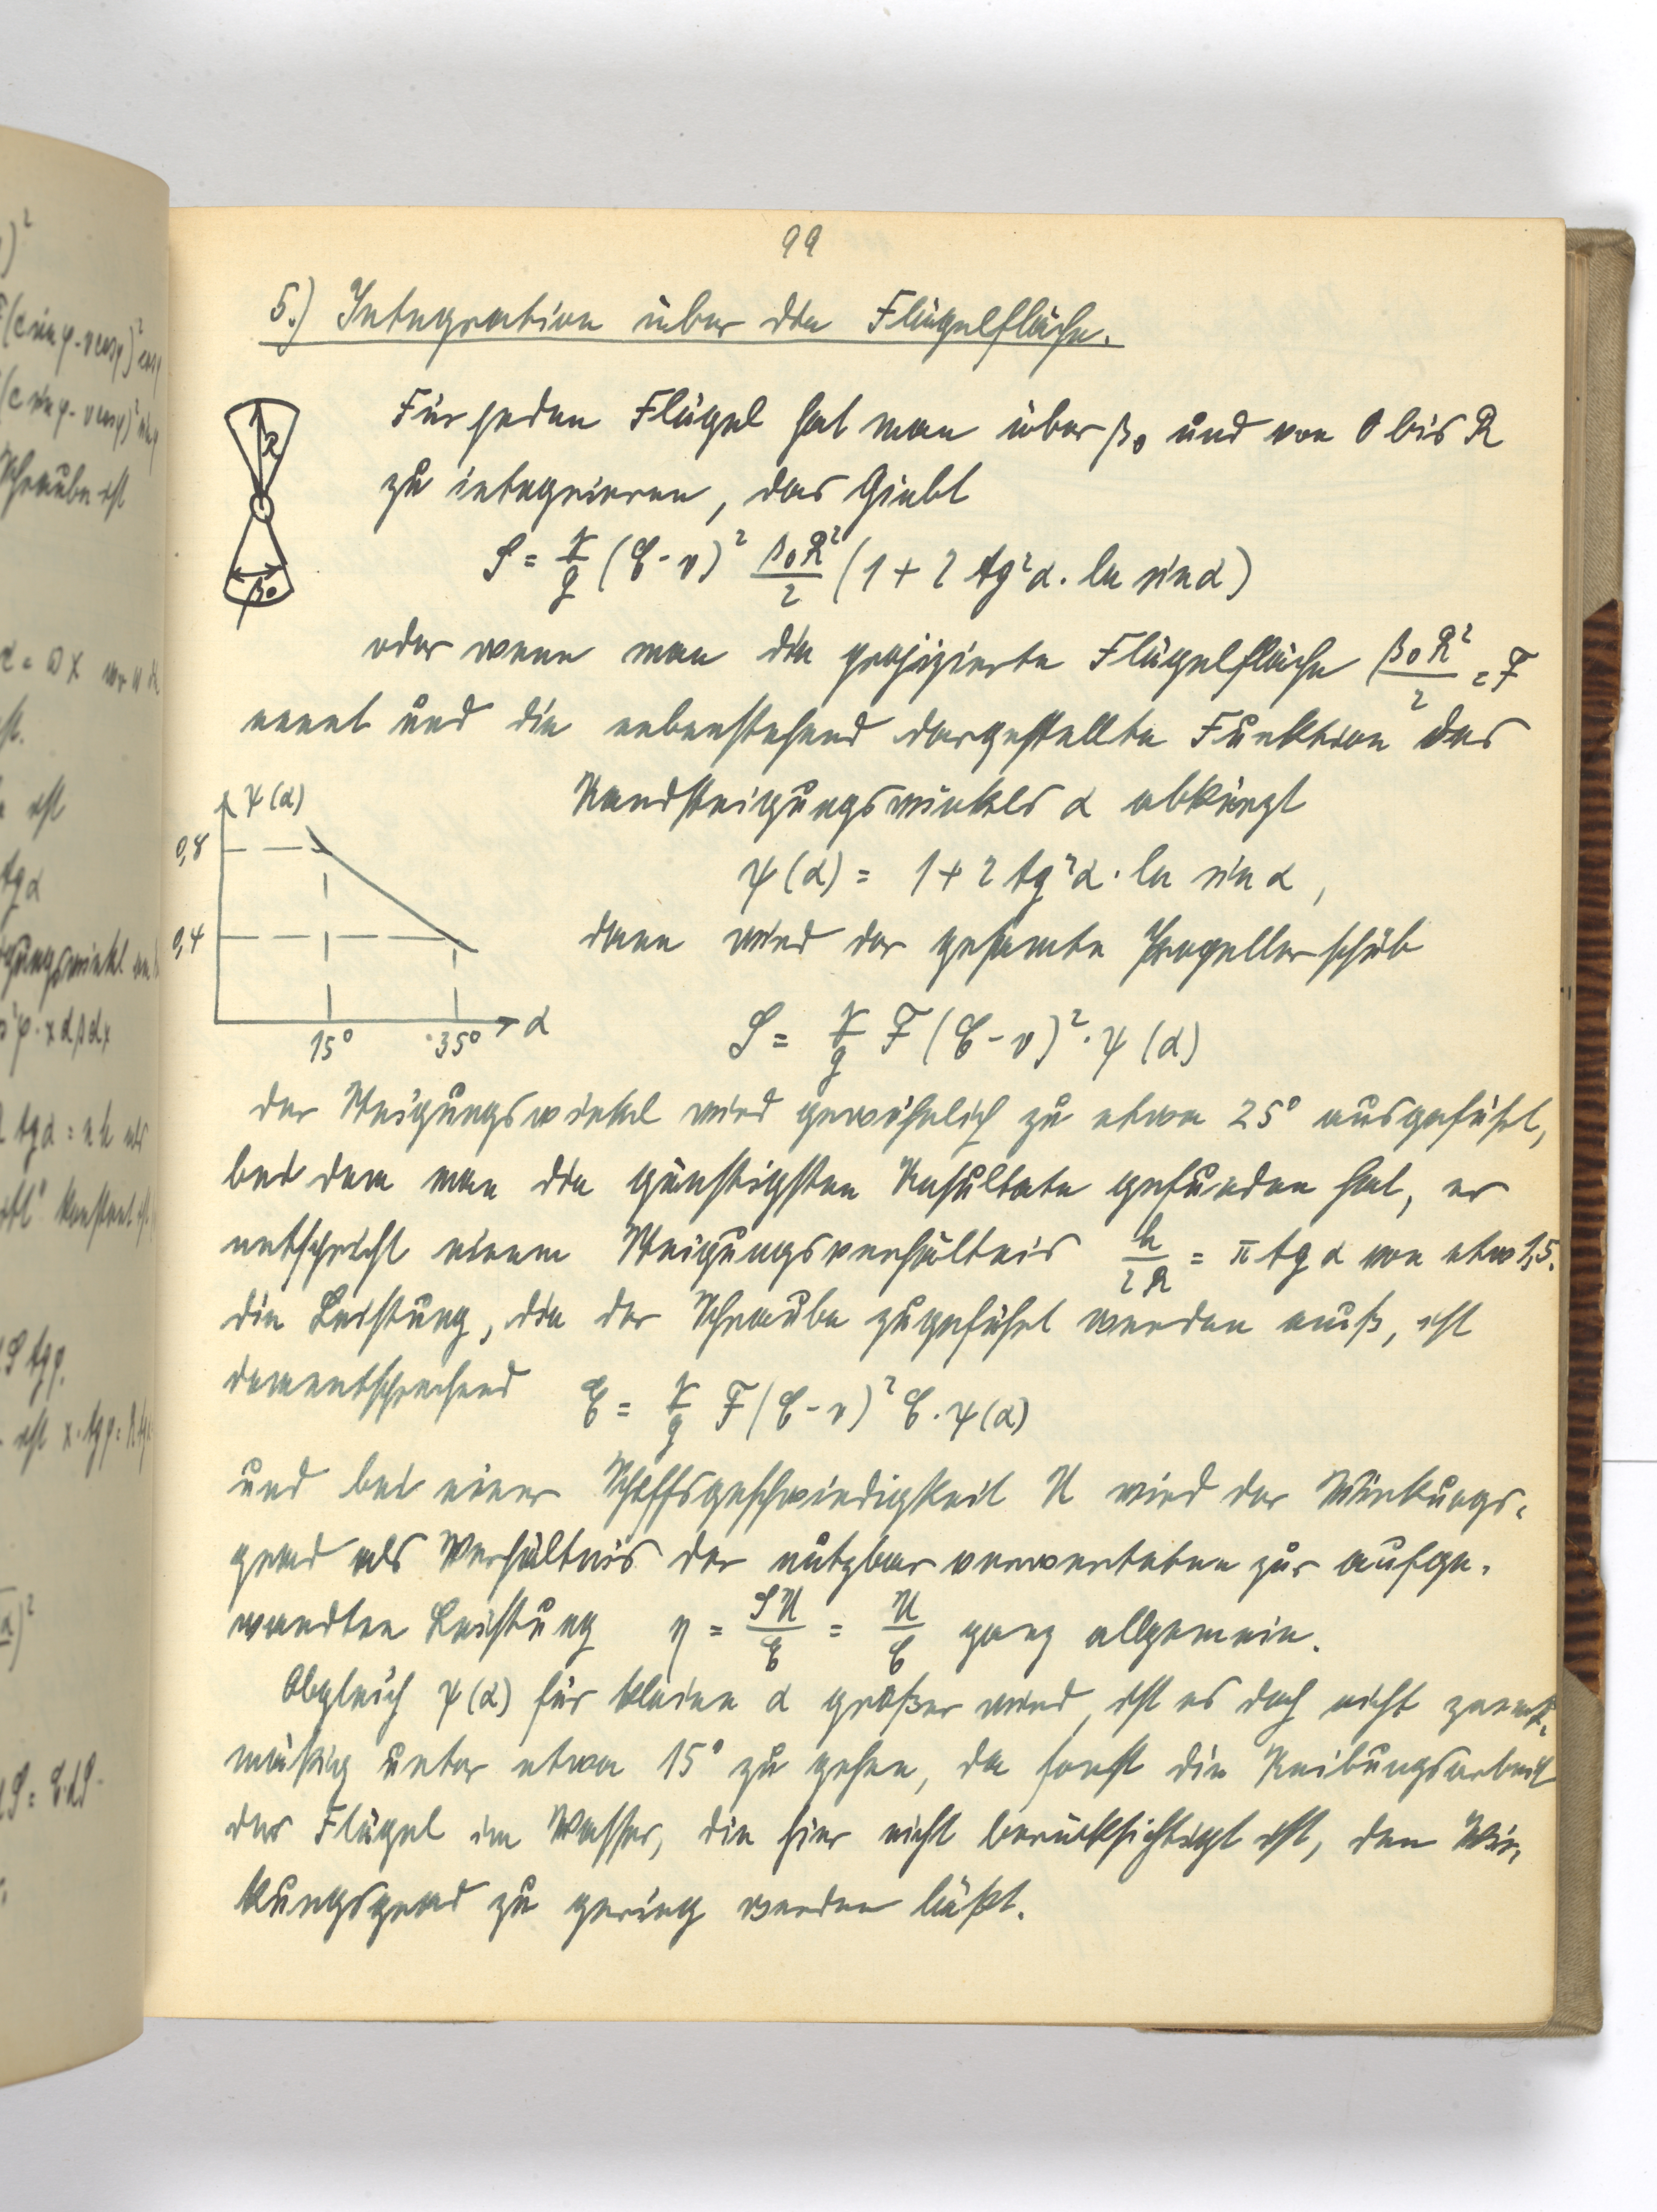 99
5.) Integration über die Flügelfläche.
Für jeden Flügel hat man über β₀ und von 0 bis R
zu integrieren, das Giebt
S = γ/g (C - v)² β₀R²/2 (1 + 2 tg²α · ln sin α)
oder wenn man die projizierte Flügelfläche β₀R²/2 = F
nennt und die nebenstehend dargestellte Funktion des
Randsteigungswinkels α abkürzt
ψ(α) = 1 + 2 tg²α · ln sin α,
dann wird der gesamte Propellerschub
S = γ/g F (C - v)² · ψ(α)
R
β₀
ψ(α)
0,8
0,4
15°
35°
α
der Steigungswinkel wird gewöhnlich zu etwa 25° ausgeführt,
bei dem man die günstigsten Resultate gefunden hat, er
entspricht einem Steigungsverhältnis h/2R = π tg α von etwa 1,5.
die Leistung, die der Schraube zugeführt werden muß, ist
dementsprechend E = γ/g F (C - v)² C · ψ(α)
und bei einer Schiffsgeschwindigkeit U wird der Wirkungs-
grad als Verhältnis der nutzbar verwerteten zur aufge-
wandten Leistung η = SU/E = U/C ganz allgemein.
Obgleich ψ(α) für kleine α größer wird, ist es doch nicht zweck-
mäßig unter etwa 15° zu gehen, da sonst die Reibungsarbeit
der Flügel im Wasser, die hier nicht berücksichtigt ist, den Wir-
kungsgrad zu gering werden läßt.